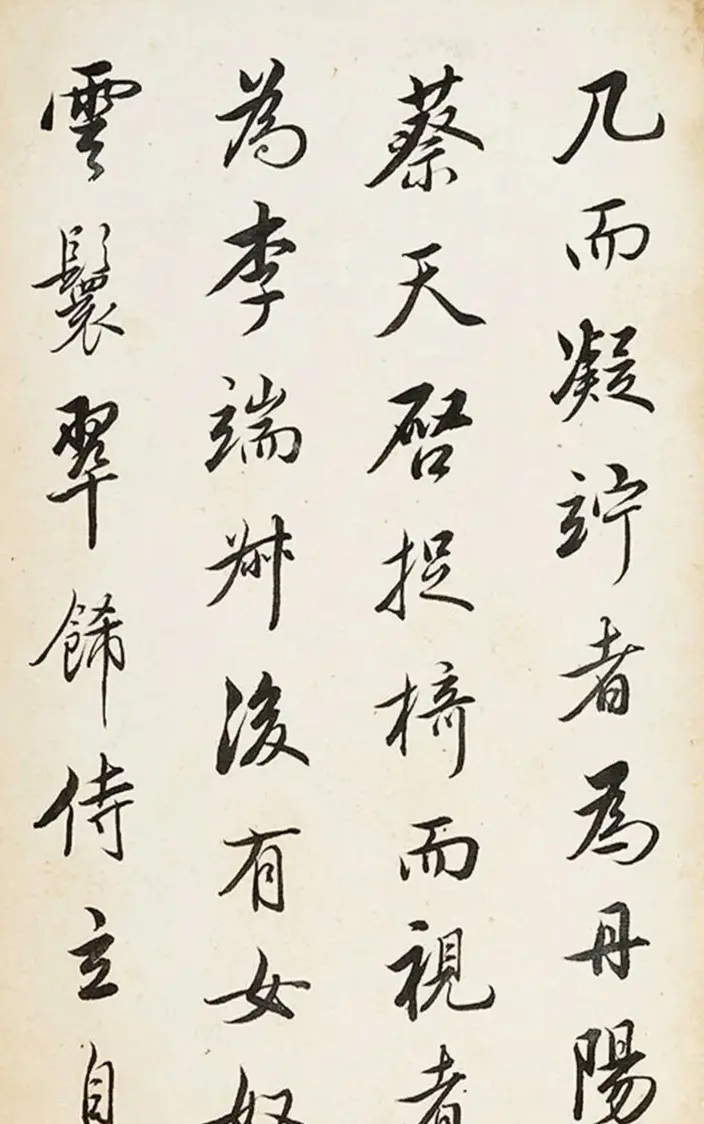 几而凝竚者為丹陽
蔡天啓捉椅而視者
為李端叔後有女奴
雲鬟翠飾侍立自